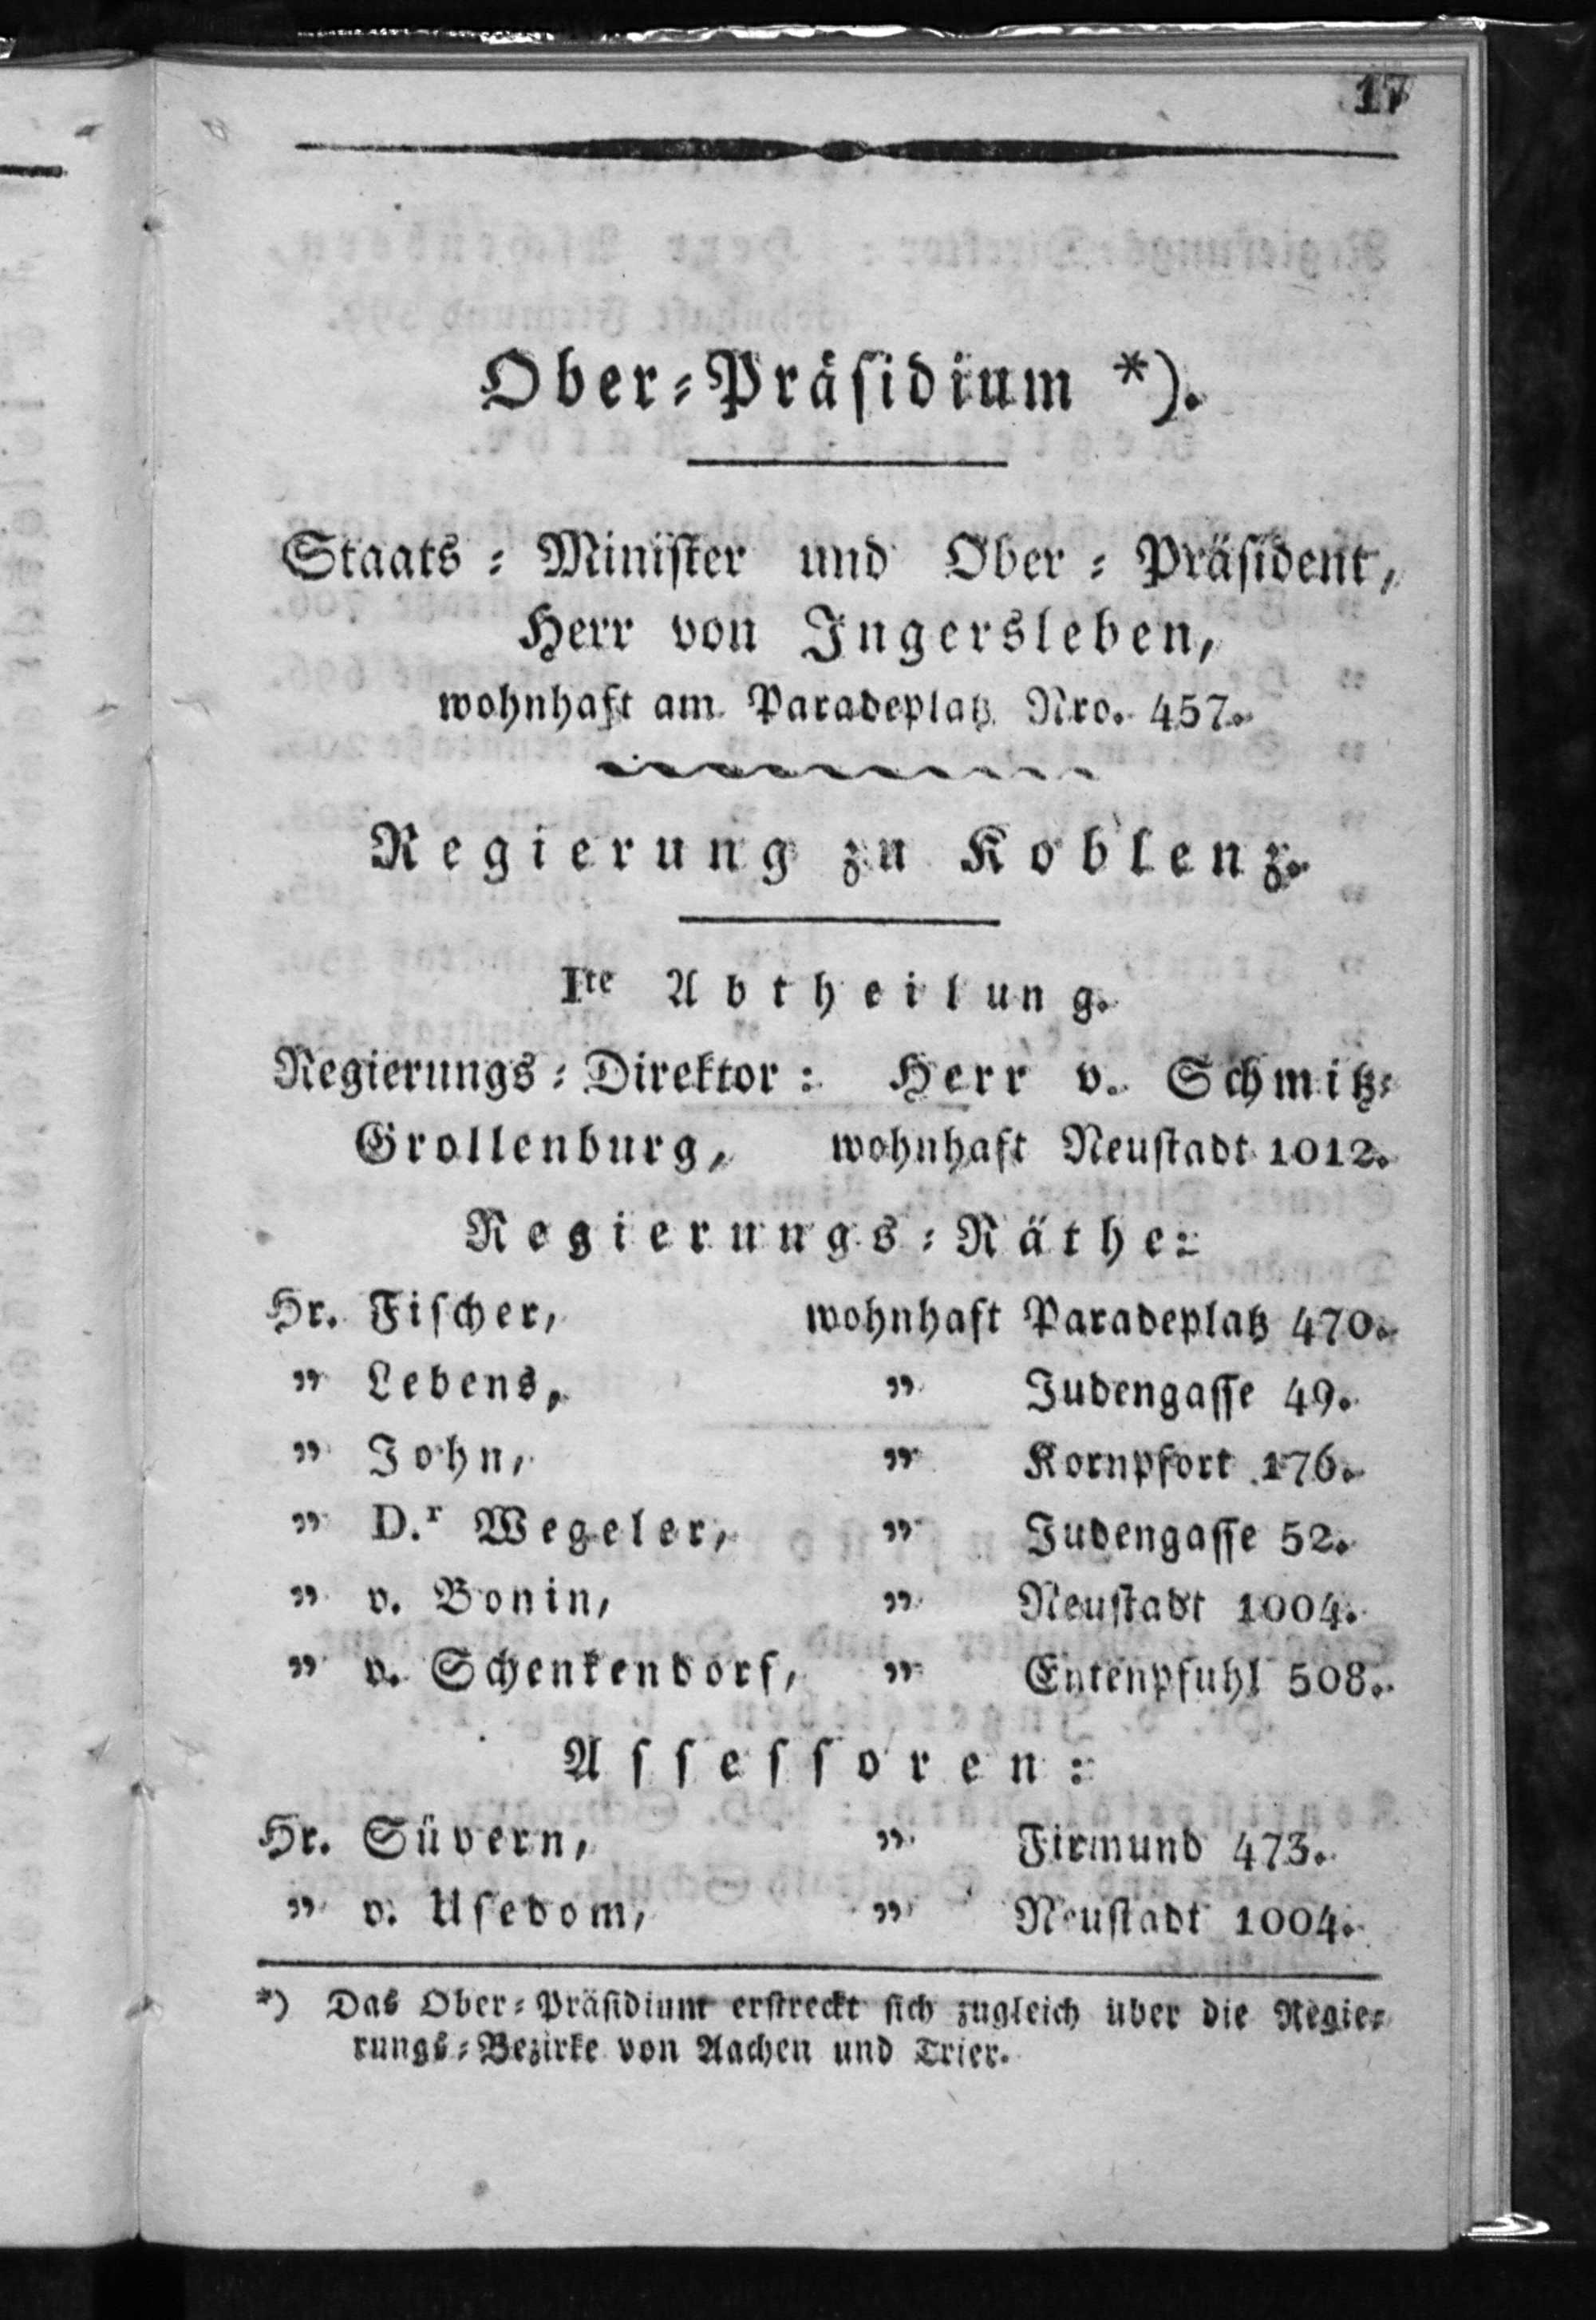 17
Ober-Präsidium *).
Staats-Minister und Ober-Präsident,
Herr von Ingersleben,
wohnhaft am Paradeplatz Nro. 457.
Regierung zu Koblenz.
Ite Abtheilung.
Regierungs-Direktor: Herr v. Schmitz-
Grollenburg, wohnhaft Neustadt 1012.
Regierungs-Räthe:
Hr. Fischer, wohnhaft Paradeplatz 470.
" Lebens, " Judengasse 49.
" John, " Kornpfort 176.
" D.r Wegeler, " Judengasse 52.
" v. Bonin, " Neustadt 1004.
" v. Schenkendorf, " Entenpfuhl 508.
Assessoren:
Hr. Süvern, " Firmund 473.
" v. Usedom, " Neustadt 1004.
*) Das Ober-Präsidium erstreckt sich zugleich über die Regie-
rungs-Bezirke von Aachen und Trier.